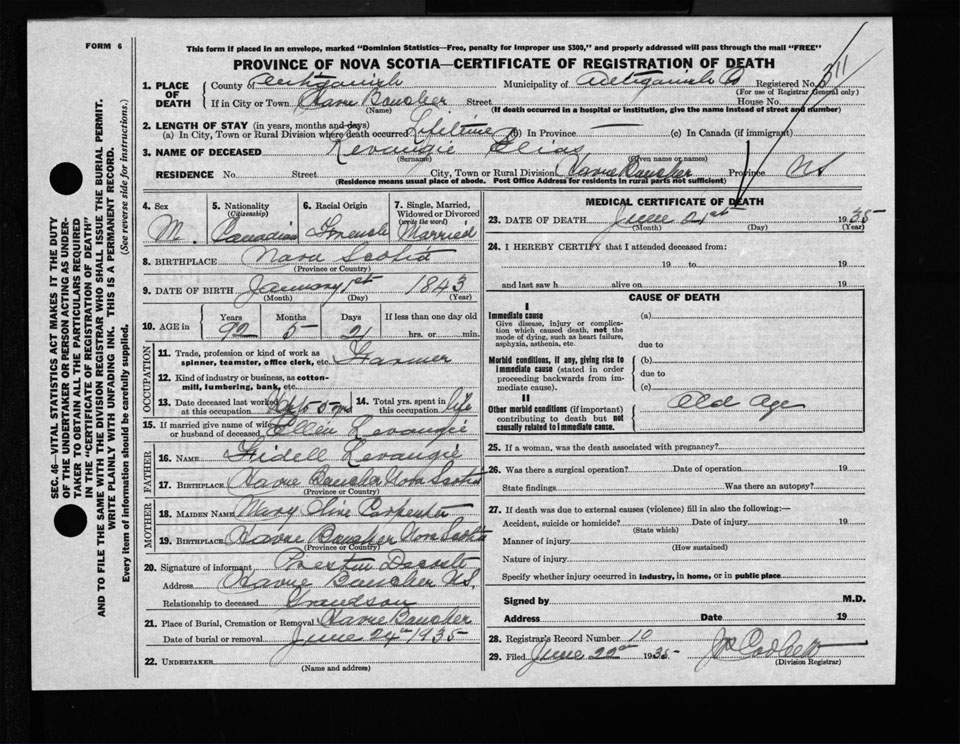 FORM 6
This form if placed in an envelope, marked "Dominion Statistics—Free, penalty for improper use $300," and properly addressed will pass through the mail "FREE"
PROVINCE OF NOVA SCOTIA—CERTIFICATE OF REGISTRATION OF DEATH
SEC. 46—VITAL STATISTICS ACT MAKES IT THE DUTY
OF THE UNDERTAKER OR PERSON ACTING AS UNDER-
TAKER TO OBTAIN ALL THE PARTICULARS REQUIRED
IN THE "CERTIFICATE OF REGISTRATION OF DEATH"
AND TO FILE THE SAME WITH THE DIVISION REGISTRAR WHO SHALL ISSUE THE BURIAL PERMIT.
WRITE PLAINLY WITH UNFADING INK. THIS IS A PERMANENT RECORD.
Every item of information should be carefully supplied. (See reverse side for instructions.)
1. PLACE OF DEATH
County of Antigonish Municipality of Antigonish Co Registered No. 311
(For use of Registrar General only)
If in City or Town Havre Boucher Street House No.
(Name) (If death occurred in a hospital or institution, give the name instead of street and number)
2. LENGTH OF STAY (in years, months and days)
(a) In City, Town or Rural Division where death occurred Lifetime (b) In Province — (c) In Canada (if immigrant)
3. NAME OF DECEASED Levangie Elias
(Surname) (Given name or names)
RESIDENCE No. Street City, Town or Rural Division Havre Boucher Province NS
(Residence means usual place of abode. Post Office Address for residents in rural parts not sufficient)
4. Sex M.
5. Nationality (Citizenship) Canadian
6. Racial Origin French
7. Single, Married, Widowed or Divorced (write the word) Married
8. BIRTHPLACE Nova Scotia
(Province or Country)
9. DATE OF BIRTH January 1st 1843
(Month) (Day) (Year)
10. AGE in Years Months Days If less than one day old
92 5 21 hrs. or min.
OCCUPATION
11. Trade, profession or kind of work as spinner, teamster, office clerk, etc. Farmer
12. Kind of industry or business, as cotton-mill, lumbering, bank, etc.
13. Date deceased last worked at this occupation
14. Total yrs. spent in this occupation life
15. If married give name of wife or husband of deceased Ellen Levangie
FATHER
16. NAME Fidell Levangie
17. BIRTHPLACE Havre Boucher Nova Scotia
(Province or Country)
MOTHER
18. MAIDEN NAME Mary Olive Carpenter
19. BIRTHPLACE Havre Boucher Nova Scotia
(Province or Country)
20. Signature of informant Preston Decoste
Address Havre Boucher NS.
Relationship to deceased Grandson
21. Place of Burial, Cremation or Removal Havre Boucher
Date of burial or removal June 24th 1935
22. UNDERTAKER
(Name and address)
MEDICAL CERTIFICATE OF DEATH
23. DATE OF DEATH June 21st 1935
(Month) (Day) (Year)
24. I HEREBY CERTIFY that I attended deceased from:
19 to 19
and last saw h alive on 19
CAUSE OF DEATH
I
Immediate cause (a)
Give disease, injury or complication which caused death, not the mode of dying, such as heart failure, asphyxia, asthenia, etc.
due to
Morbid conditions, if any, giving rise to immediate cause (stated in order proceeding backwards from immediate cause).
(b)
due to
(c)
II
Other morbid conditions (if important) contributing to death but not causally related to immediate cause.
Old Age
25. If a woman, was the death associated with pregnancy?
26. Was there a surgical operation? Date of operation 19
State findings Was there an autopsy?
27. If death was due to external causes (violence) fill in also the following:—
Accident, suicide or homicide? Date of injury 19
(State which)
Manner of injury
(How sustained)
Nature of injury
Specify whether injury occurred in industry, in home, or in public place
Signed by M.D.
Address Date 19
28. Registrar's Record Number 10
29. Filed June 22nd 1935
(Division Registrar)